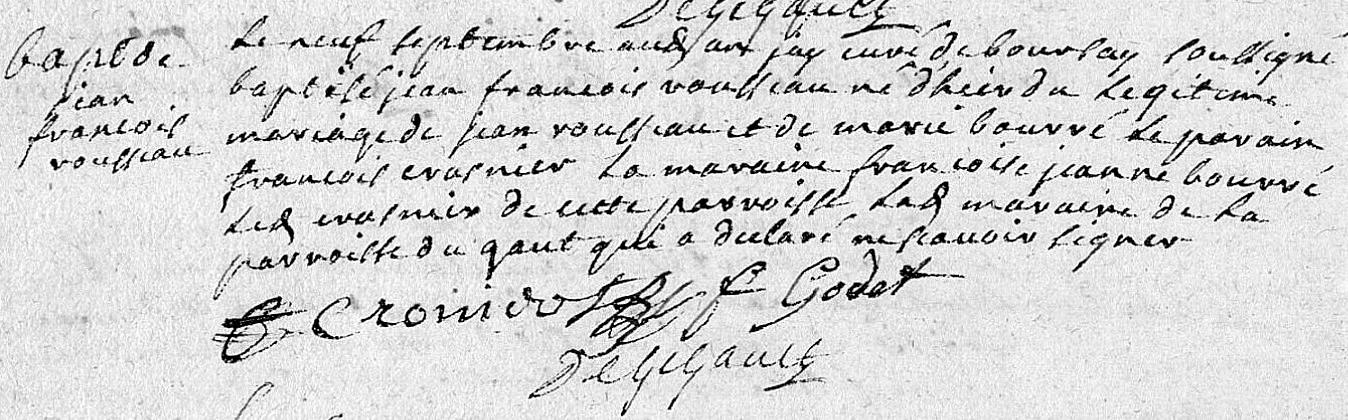 bapt de
jean
francois
rousseau
Le neuf septembre aud an jay curé de boursay soussigné
baptisé jean francois rousseau né dhier du Legitime
mariage de jean rousseau et de marie bourré Le parain
francois crosnier La maraine francoise jeanne bourré
Led crosnier de cette parroisse Lad maraine de La
parroisse du gaut qui a declaré ne scavoir signer
f Godet